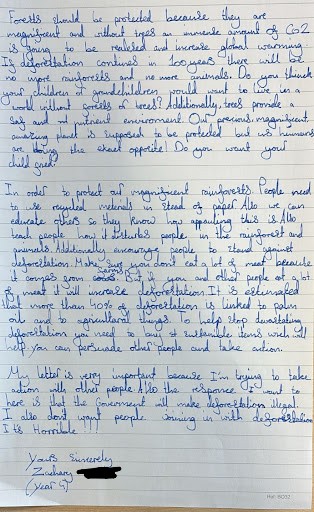 Forests should be protected because they are
magnificent and without trees an immense amount of Co2
is going to be realeled and increase global warming
If deforestation contiues in 100 years there will be
no more rainforests and no more animals. Do you think
your children or grandchildren would want to live in a
world without forests or trees? Additionally, trees provide a
safe and nutrient environment. Our precious, magnificent,
amazing planet is supposed to be protected but us humans
are doing the exact opposite! Do you want your
child
In order to protect our magnificent rainforests. People need
to use recycled meterials in stead of paper. Also we can
educate others so they know how appauling this is. Also
teach people how it disturbs people in the rainforest and
animals. Additionally encourage people to stand against
deforestation. Make sure you don't eat a lot of meat because
it comes from cows. But if you and other people eat a lot
of meat it will increase deforestation. It is estimated
that more than 40% of deforestation is linked to palm
oil and to agricultural things. To help stop devastating
deforestation you need to buy sustainible items wich will
help. You can persuade other people and take action.
My letter is very important because I'm trying to take
action with other people. Also the responce I want to
here is that the Government will make deforestation illegal
I also dont want people joining us with deforestation
It's Horrible!!!
Yours Sincerely
Zachary
(Year 5)